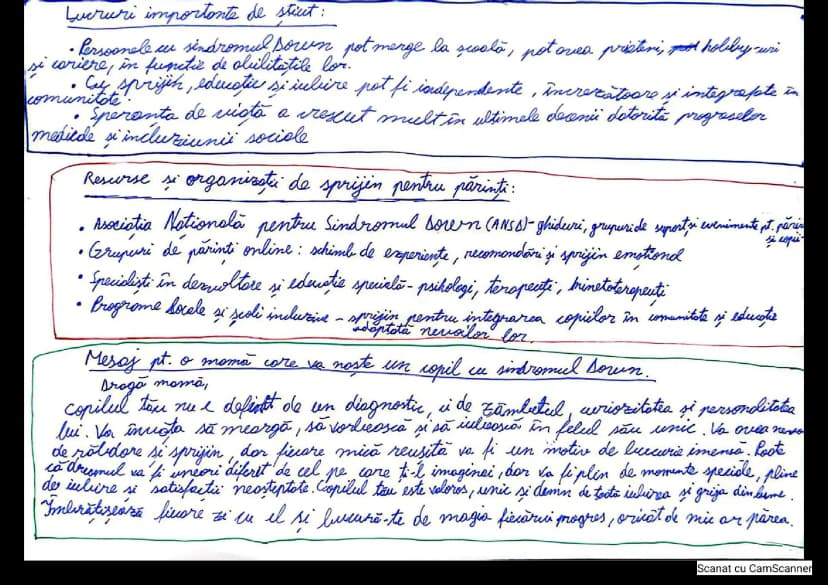 Lucruri importante de știut:
• Persoanele cu sindromul Down pot merge la școală, pot avea prieteni, hobby-uri
și cariere, în funcție de abilitățile lor.
• Cu sprijin, educație și iubire pot fi independente, încrezătoare și integrate în
comunitate.
• Speranța de viață a crescut mult în ultimele decenii datorită progreselor
medicale și incluziunii sociale
Resurse și organizații de sprijin pentru părinți:
• Asociația Națională pentru Sindromul Down (ANSD) - ghiduri, grupuri de suport și evenimente pt. părin
și copii
• Grupuri de părinți online: schimb de experiențe, recomandări și sprijin emoțional
• Specialiști în dezvoltare și educație specială - psihologi, terapeuți, kinetoterapeuți
• Programe locale și școli incluzive - sprijin pentru integrarea copiilor în comunitate și educație
adaptată nevoilor lor.
Mesaj pt. o mamă care va naște un copil cu sindromul Down.
Dragă mamă,
Copilul tău nu e definit de un diagnostic, ci de zâmbetul, curiozitatea și personalitatea
lui. Va învăța să meargă, să vorbească și să iubească în felul său unic. Va avea nevo
de răbdare și sprijin, dar fiecare mică reușită va fi un motiv de bucurie imensă. Poate
că drumul va fi uneori diferit de cel pe care ți-l imaginei, dar va fi plin de momente speciale, pline
de iubire și satisfacții neașteptate. Copilul tău este valoros, unic și demn de toată iubirea și grija din lume.
Îmbrățișează fiecare zi cu el și bucură-te de magia fiecărui progres, oricât de mic ar părea.
Scanat cu CamScanner